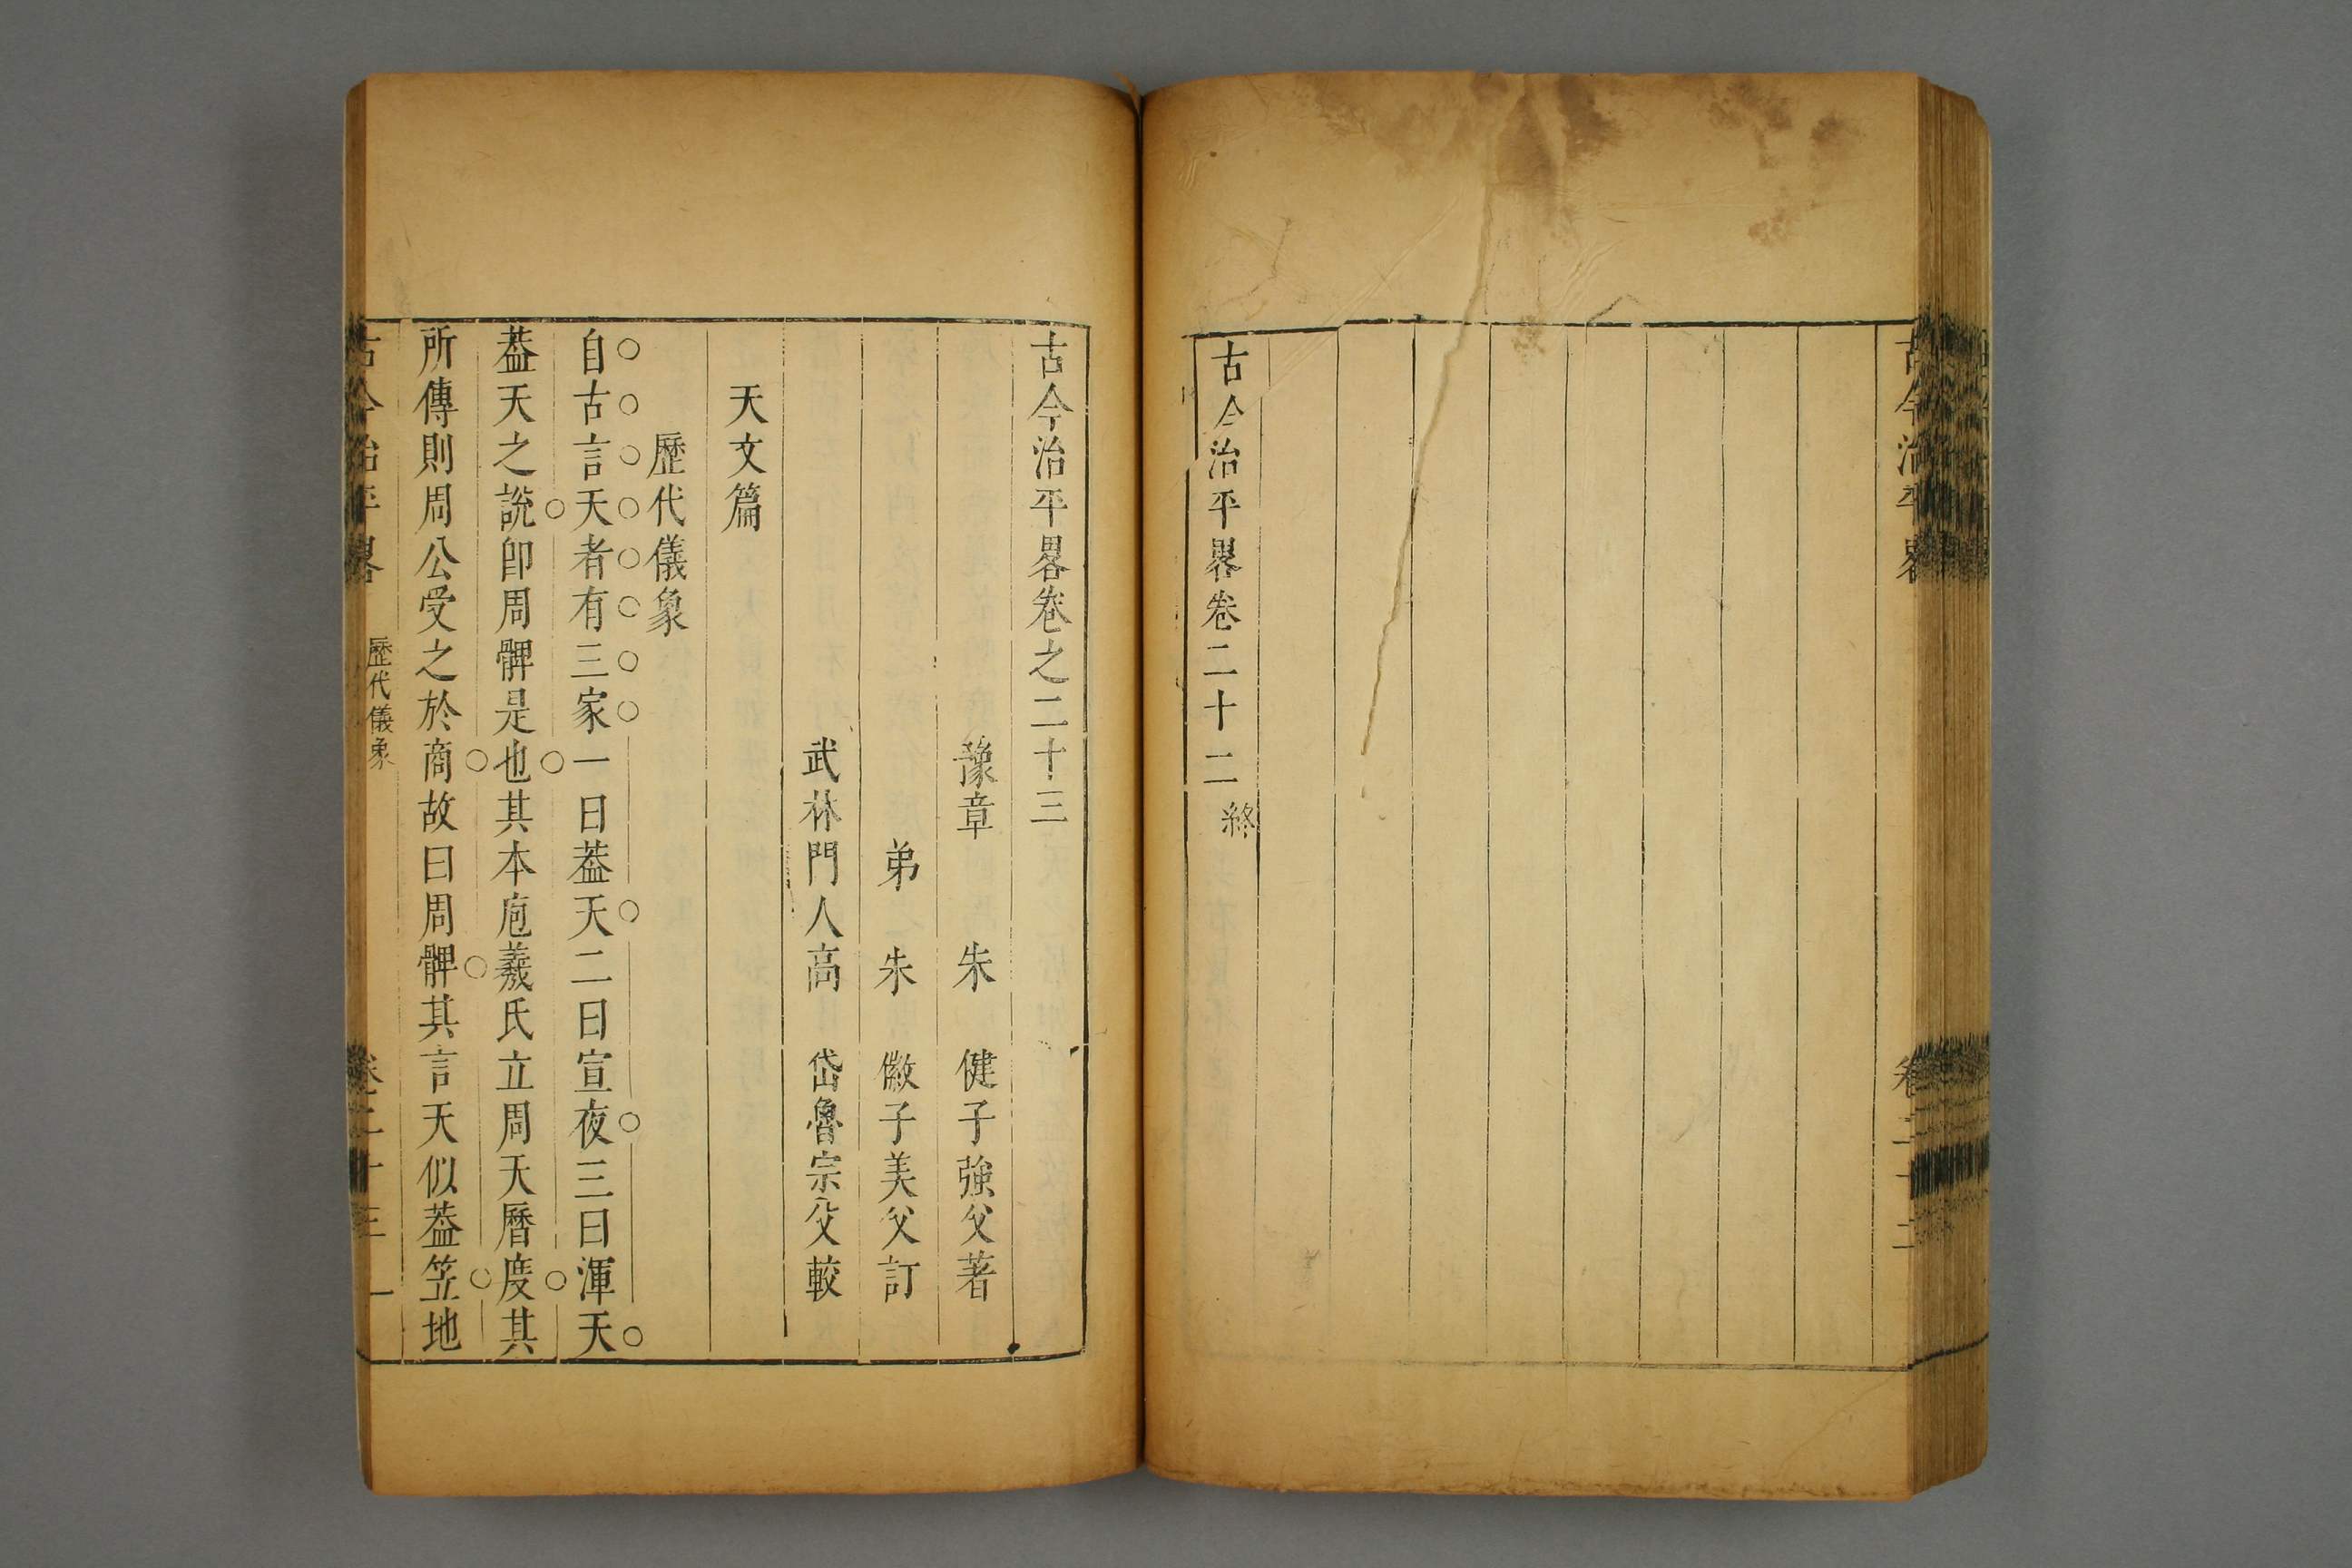 古今治平畧
卷二十二
古今治平畧卷二十二終
古今治平畧卷之二十三
豫章 朱 健子強父著
弟 朱 徽子美父訂
武林門人高 岱魯宗父較
天文篇
歷代儀象
自古言天者有三家一曰葢天二曰宣夜三曰渾天
葢天之說卽周髀是也其本庖羲氏立周天曆度其
所傳則周公受之於商故曰周髀其言天似葢笠地
古今治平畧
歷代儀象
卷二十三
一